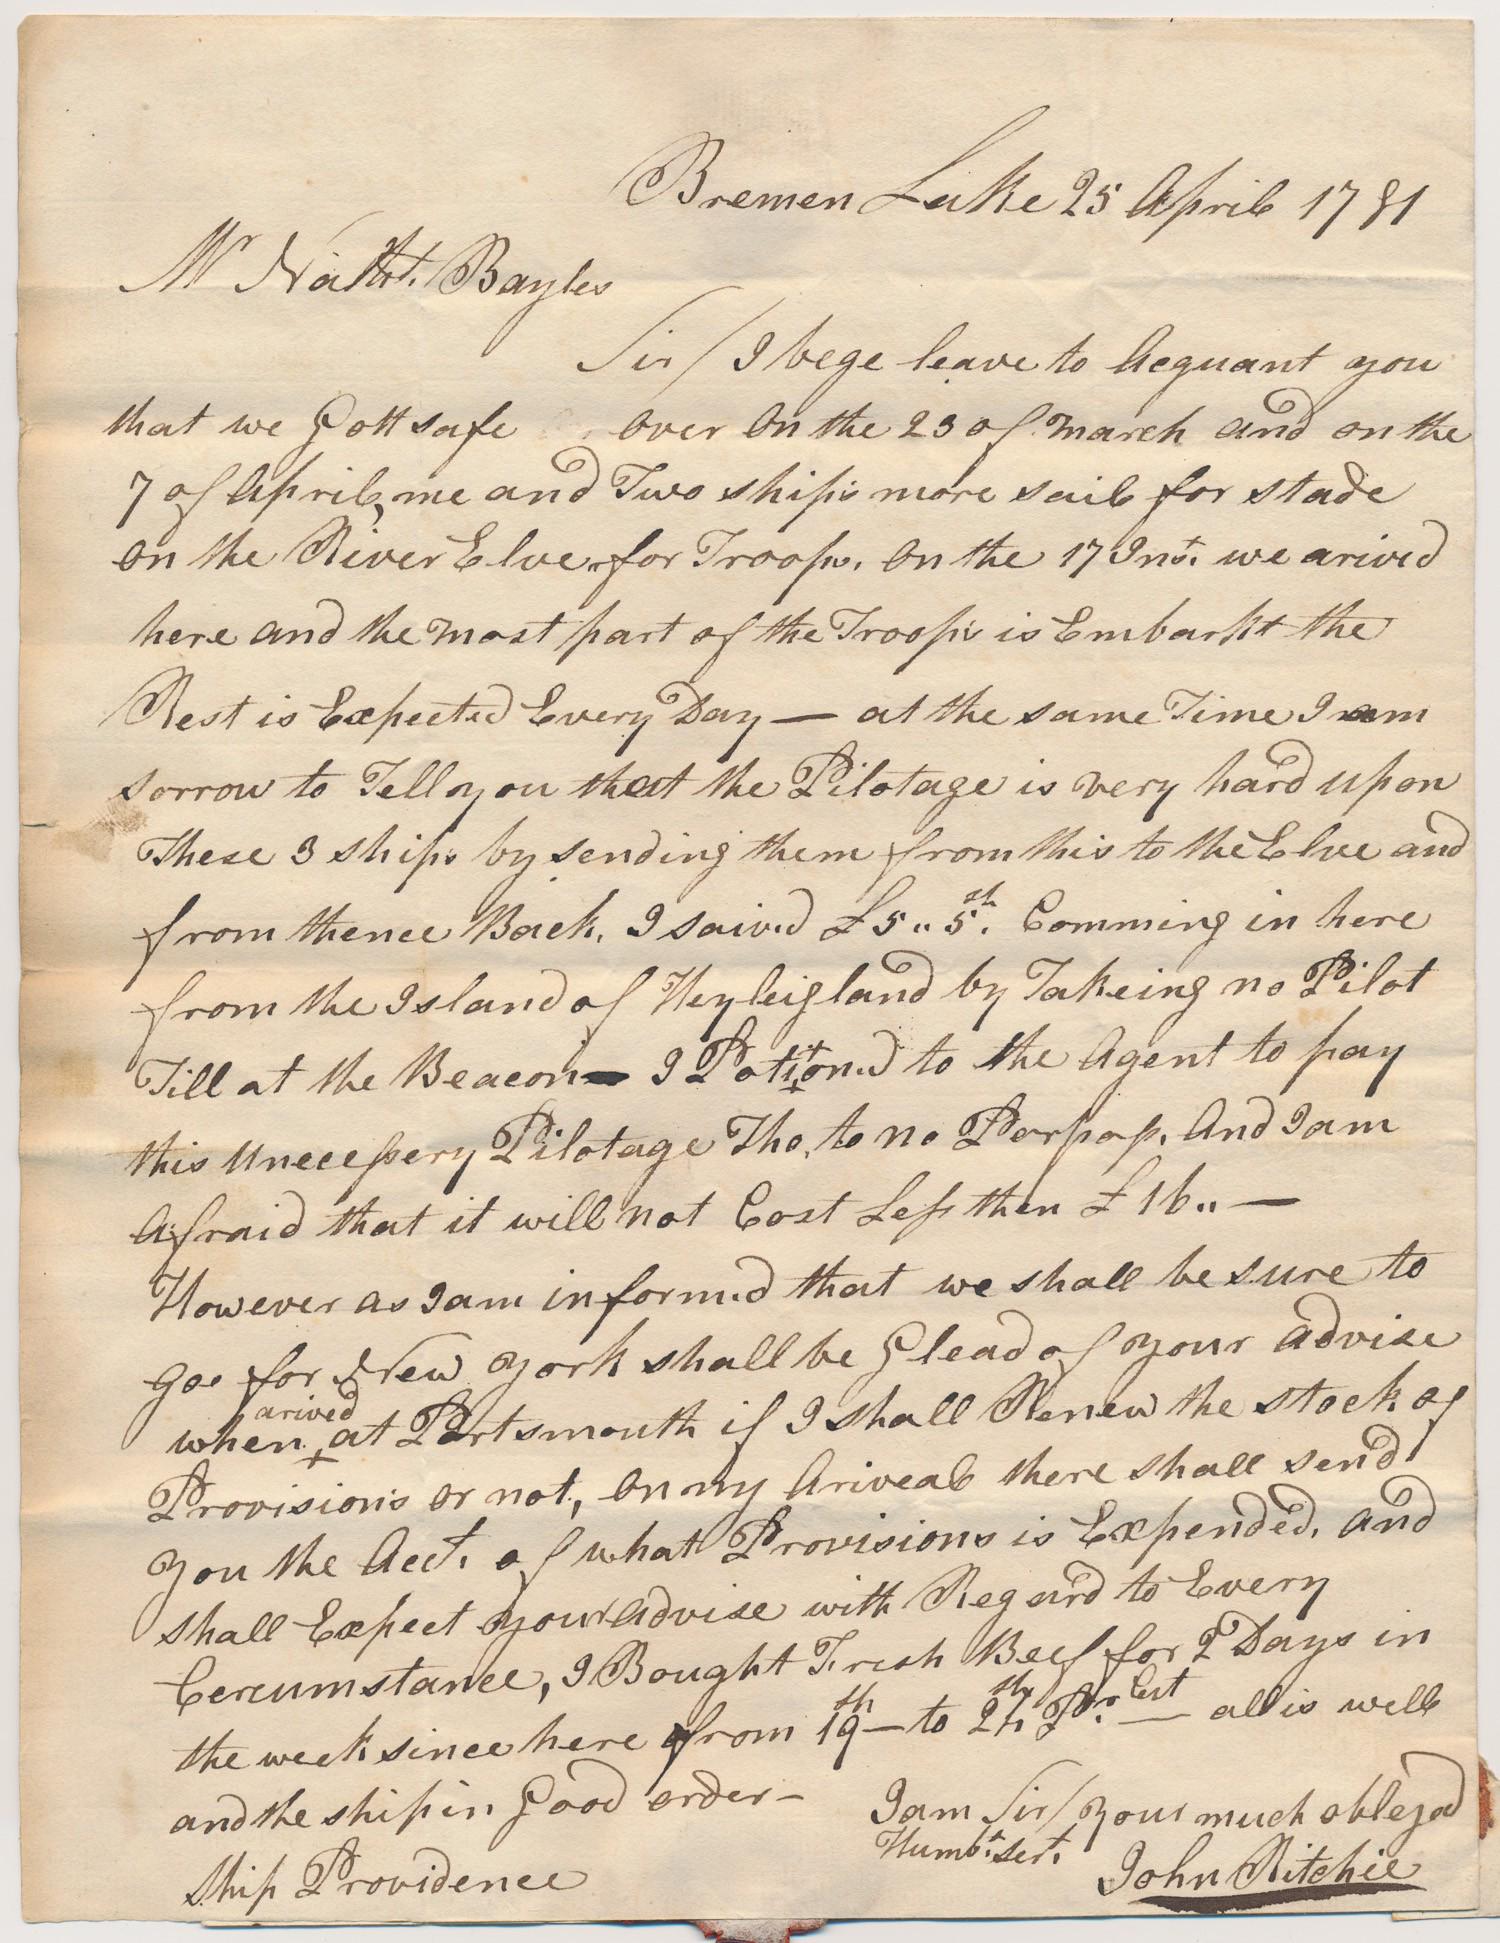 Bremen Lake 25 April 1781
Mr Nathl. Bayles
Sir/ I bege leave to Acquant you
that we Gott safe over On the 23 of March and on the
7 of April, me and Two ships more sail for stade
on the River Elve, for Troops. On the 17 Inst. we arived
here and the most part of the Troops is Embarkt the
Rest is Expected Every Day — at the same Time I am
sorrow to Tell you that the Pilotage is very hard upon
These 3 ships by sending them from this to the Elve and
from thence Back. I saived £5,, 5sh. Comming in here
from the Island of Heyleigland by Takeing no Pilot
Till at the Beacon I Potitioned to the Agent to pay
this Unecessery Pilotage Tho, to no Porpos. And I am
Afraid that it will not Cost Less then £ 16,, —
However as I am informed that we shall be sure to
goe for New York shall be Glead of your advise
when arived at Portsmouth if I shall Renew the stock of
Provisions or not, On my Ariveal there shall send
you the Acct. of what Provisions is Expended, and
shall Expect your advise with Regard to Every
Cercumstance, I Bought Fresh Beef for 2 Days in
the week since here from 19th — to 24th Pr. Cwt — all is well
and the ship in Good order —
I am Sir/ your much oblegad
Humbl. Sert.
John Ritchie
Ship Providence